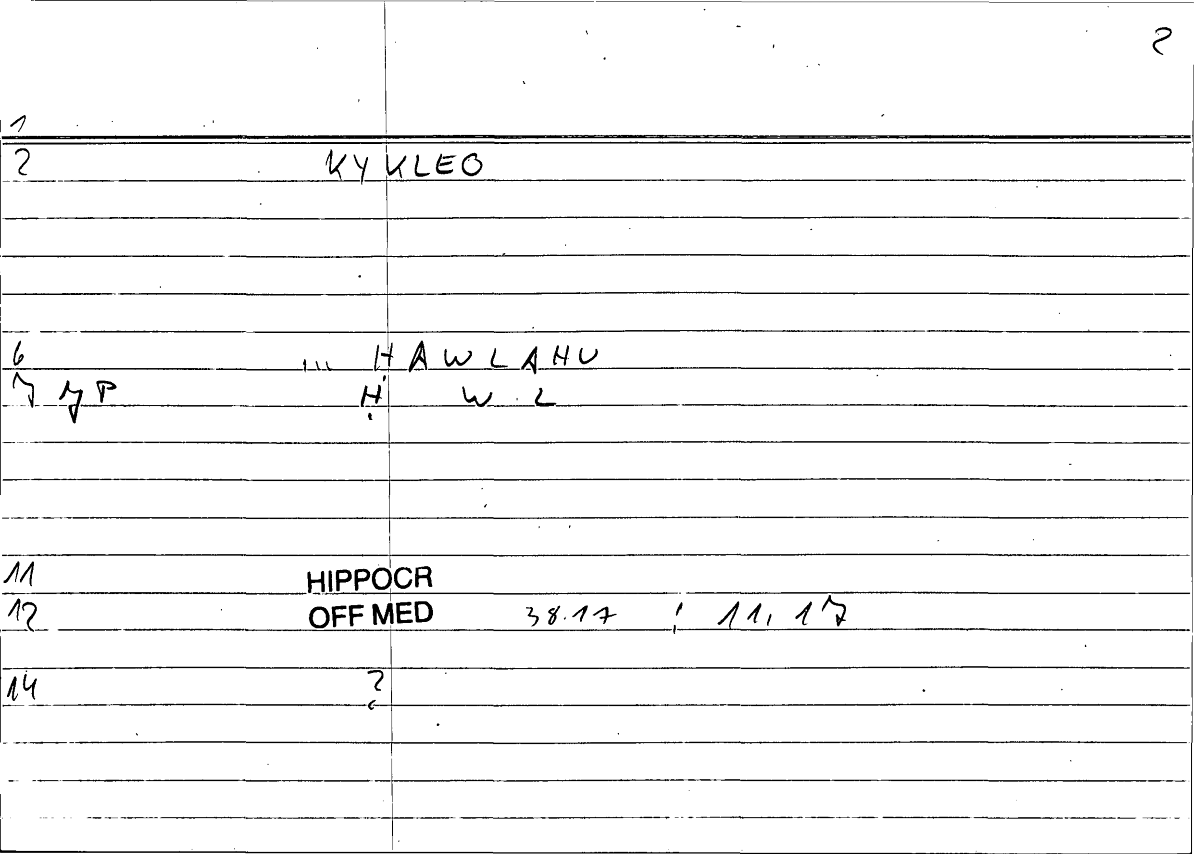 2
1
2 KYKLEO
6 ... ḤAWLAHU
7 JP Ḥ W L
11 HIPPOCR
12 OFF MED 38.17 ; 11, 17
14 ?